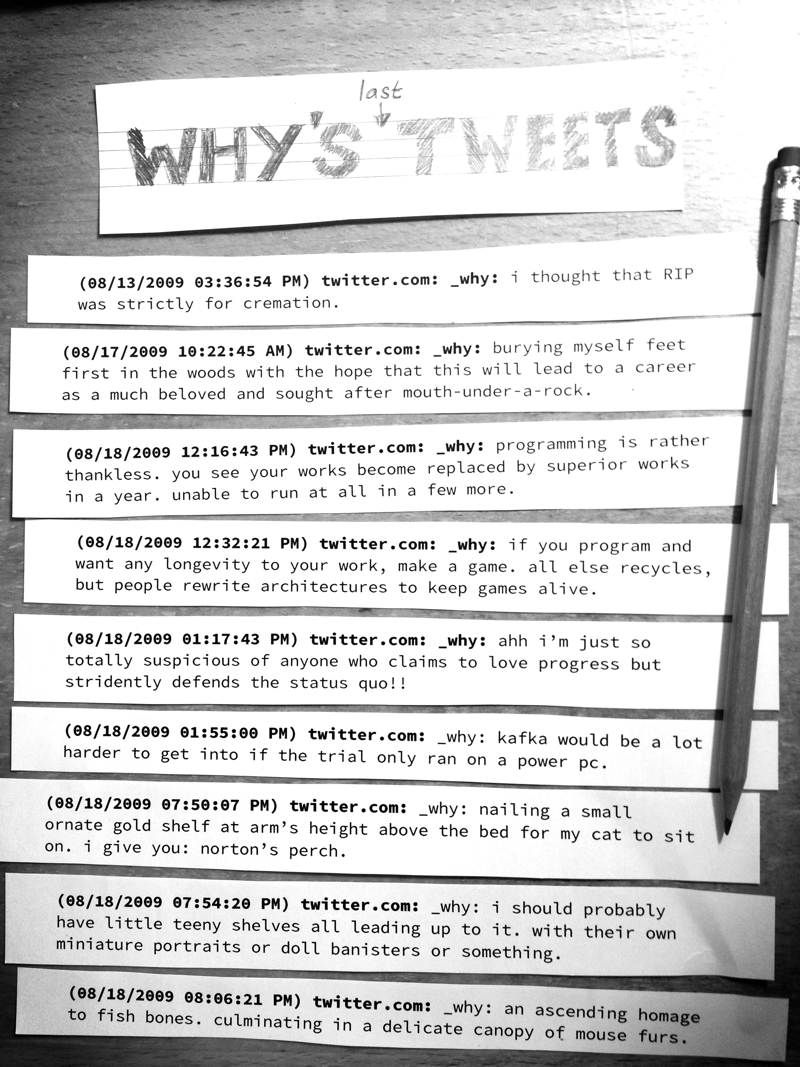 last
WHY'S TWEETS
(08/13/2009 03:36:54 PM) twitter.com: _why: i thought that RIP
was strictly for cremation.
(08/17/2009 10:22:45 AM) twitter.com: _why: burying myself feet
first in the woods with the hope that this will lead to a career
as a much beloved and sought after mouth-under-a-rock.
(08/18/2009 12:16:43 PM) twitter.com: _why: programming is rather
thankless. you see your works become replaced by superior works
in a year. unable to run at all in a few more.
(08/18/2009 12:32:21 PM) twitter.com: _why: if you program and
want any longevity to your work, make a game. all else recycles,
but people rewrite architectures to keep games alive.
(08/18/2009 01:17:43 PM) twitter.com: _why: ahh i'm just so
totally suspicious of anyone who claims to love progress but
stridently defends the status quo!!
(08/18/2009 01:55:00 PM) twitter.com: _why: kafka would be a lot
harder to get into if the trial only ran on a power pc.
(08/18/2009 07:50:07 PM) twitter.com: _why: nailing a small
ornate gold shelf at arm's height above the bed for my cat to sit
on. i give you: norton's perch.
(08/18/2009 07:54:20 PM) twitter.com: _why: i should probably
have little teeny shelves all leading up to it. with their own
miniature portraits or doll banisters or something.
(08/18/2009 08:06:21 PM) twitter.com: _why: an ascending homage
to fish bones. culminating in a delicate canopy of mouse furs.